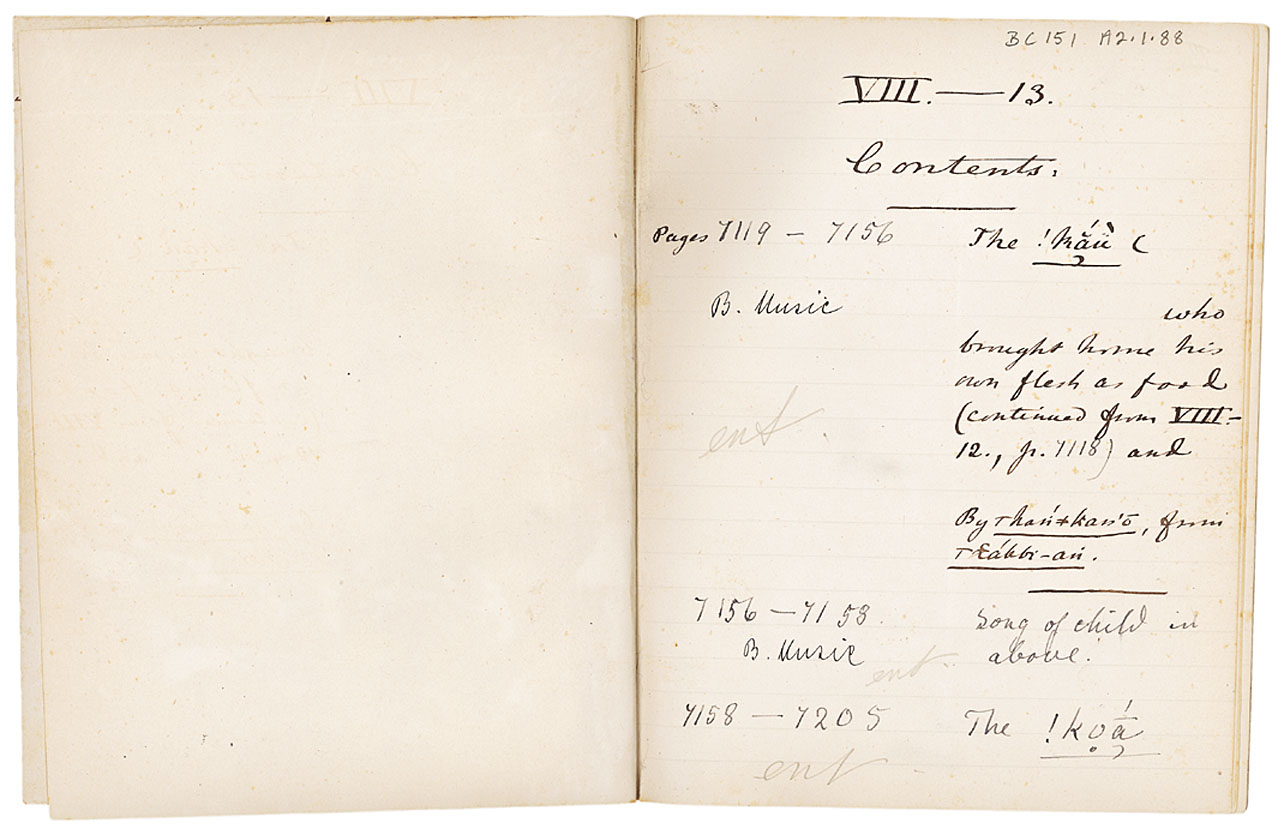 BC 151 A2.1.88
VIII. — 13.
Contents.
Pages 7119 — 7156 The !kắu̔̈ (
B. Music who
brought home his
own flesh as food
(continued from VIII-
ent. 12., p. 7118) and
By , from
.
7156 — 7158. Song of child in
B. Music above.
ent.
7158 — 7205 The !kọá̱
ent